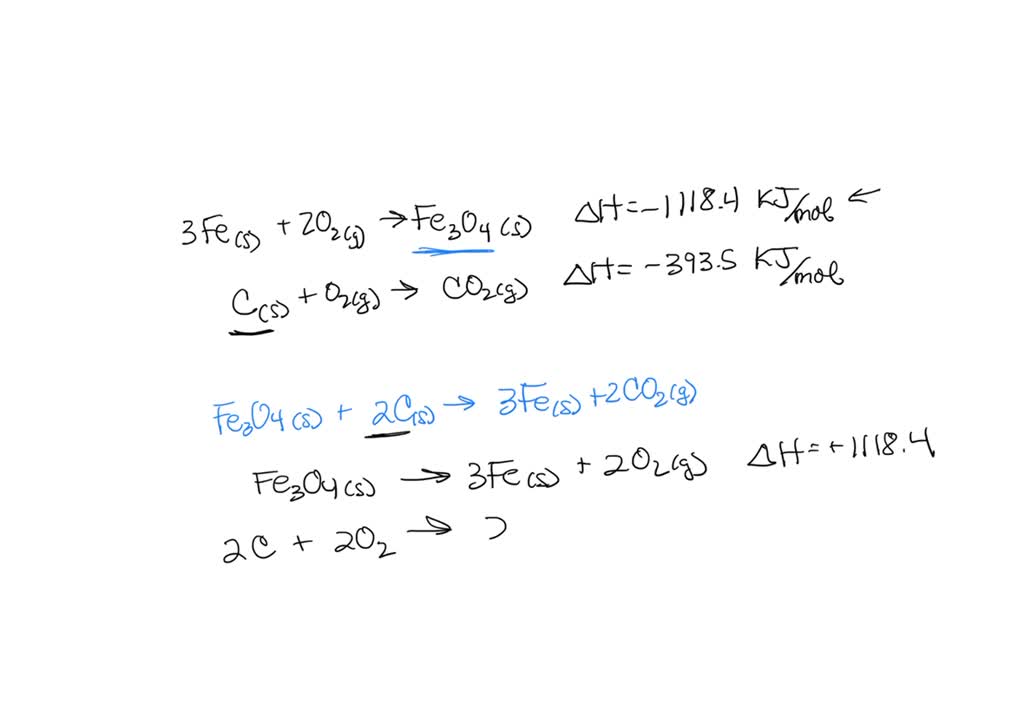 3Fe(s) + 2O2(g) → Fe3O4(s) ΔH=-1118.4 KJ/mol ←
C(s) + O2(g) → CO2(g) ΔH= -393.5 KJ/mol
Fe3O4(s) + 2C(s) → 3Fe(s) + 2CO2(g)
Fe3O4(s) → 3Fe(s) + 2O2(g) ΔH=+1118.4
2C + 2O2 →